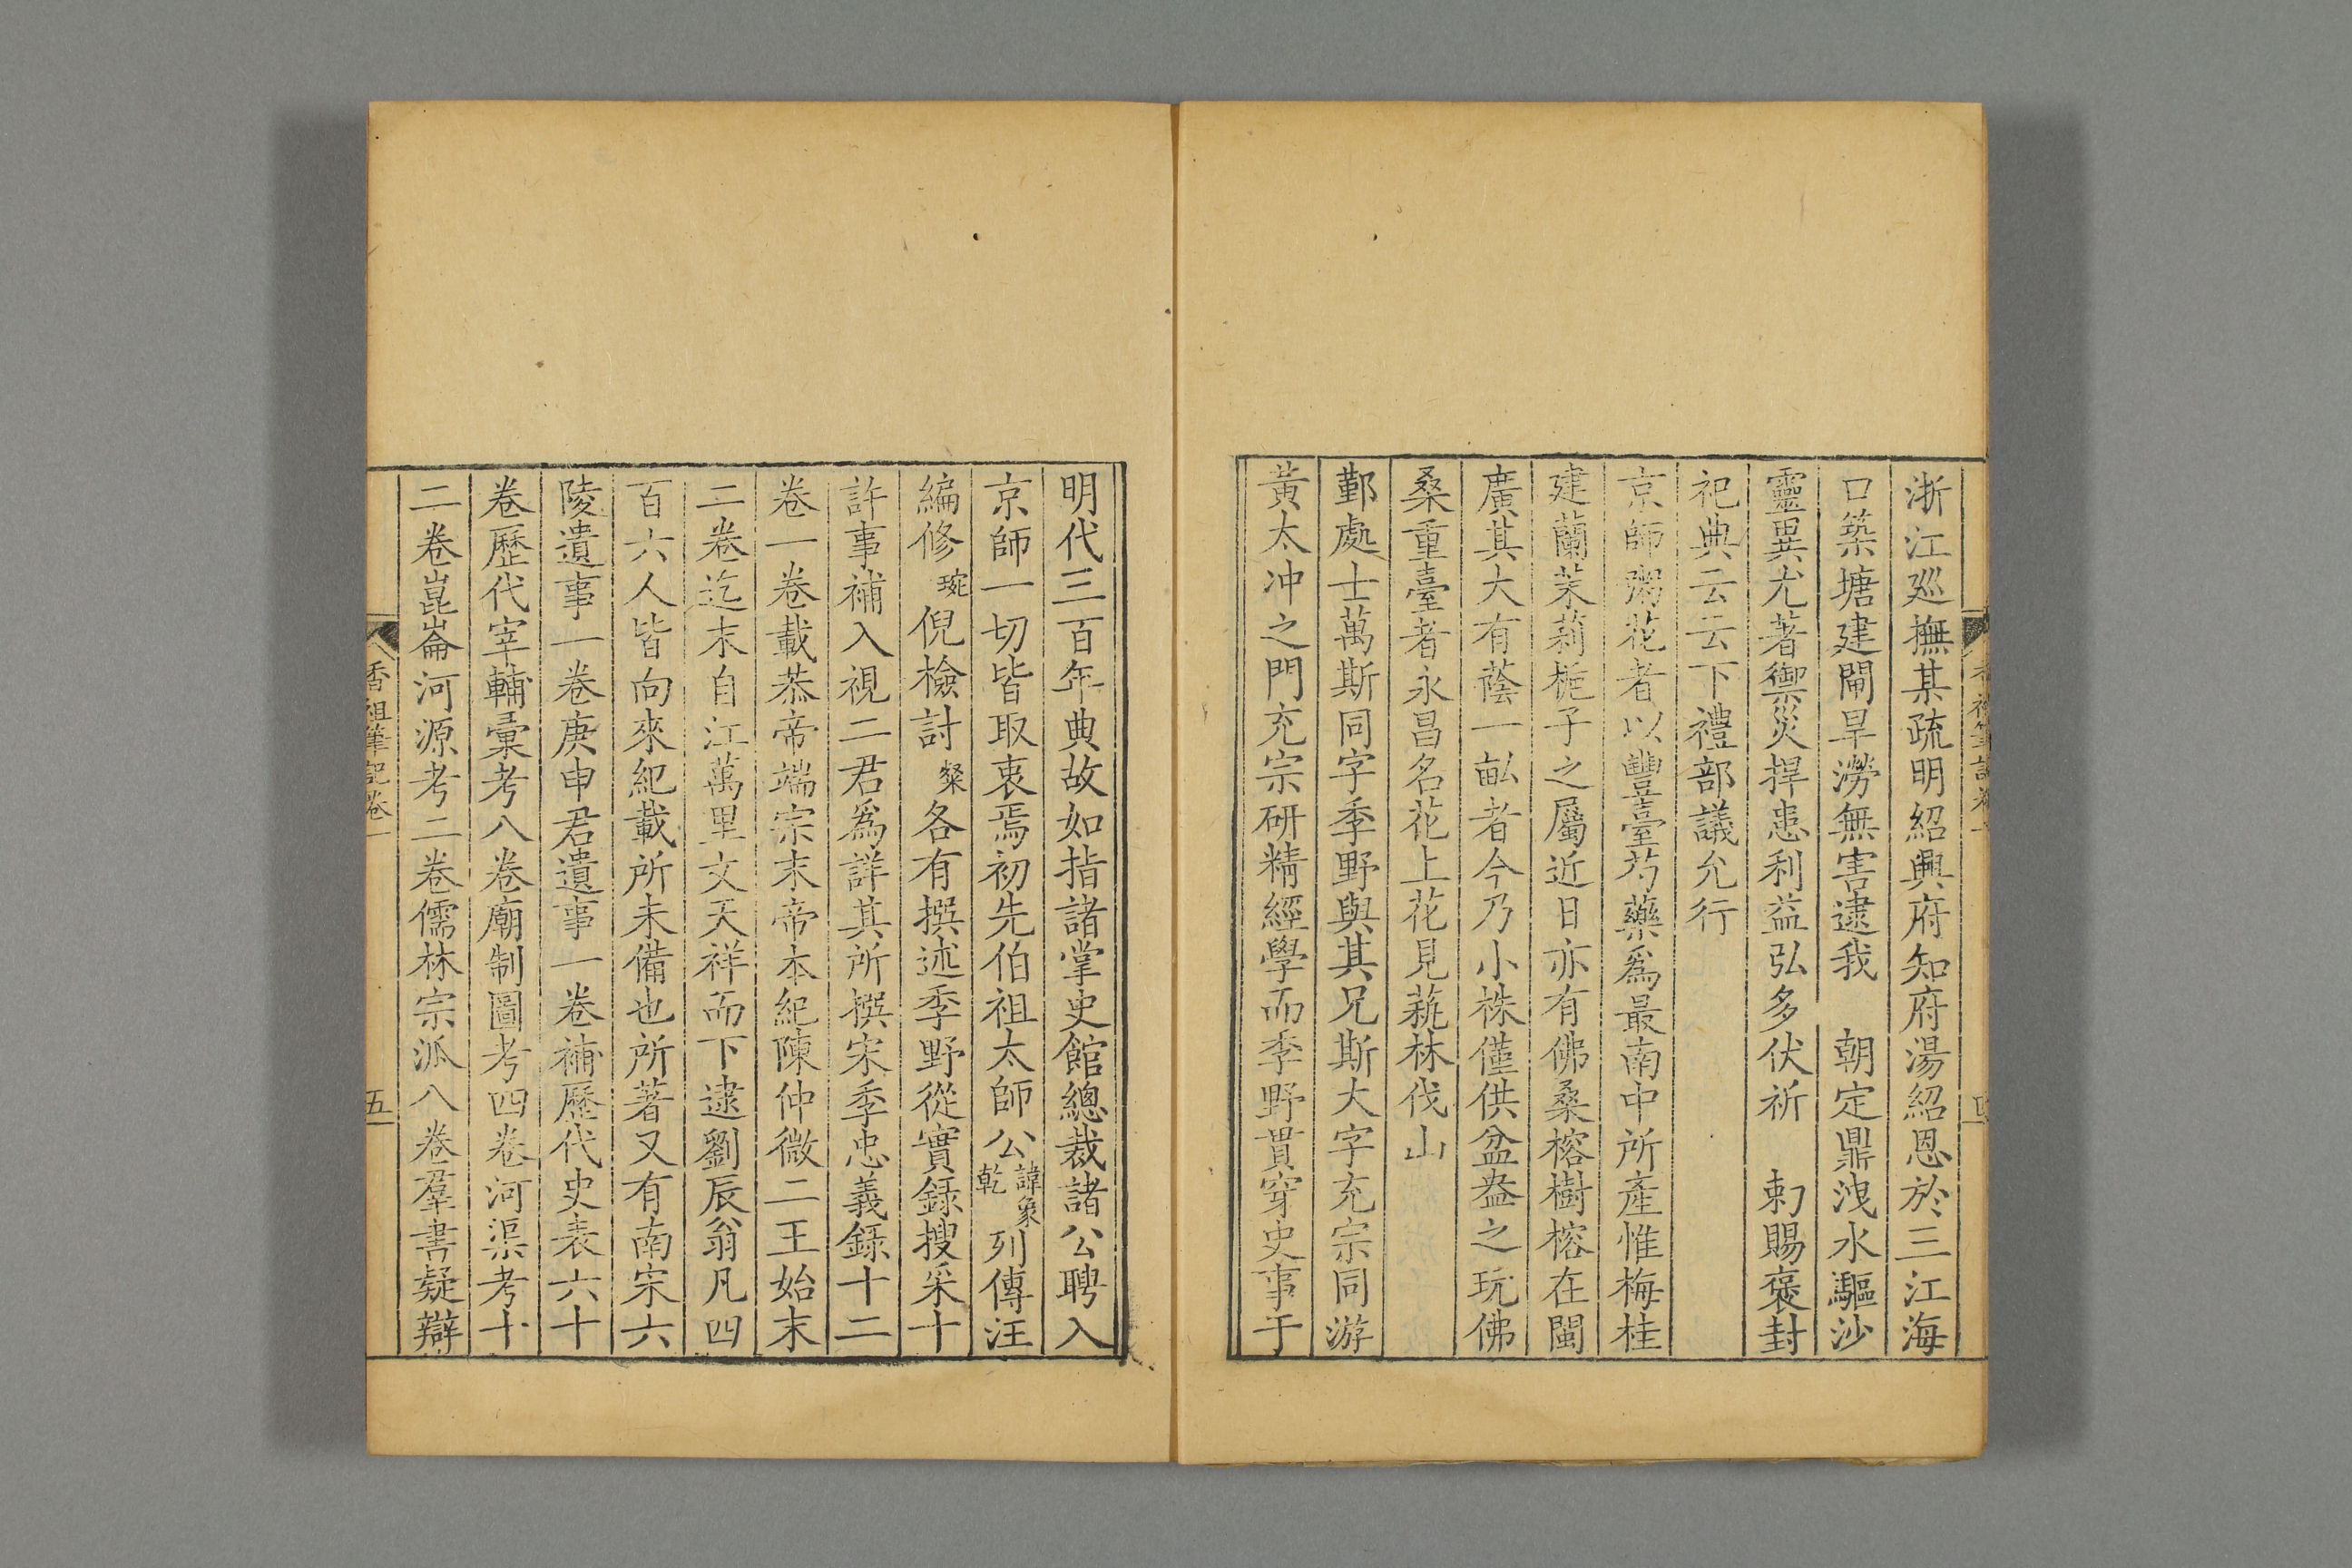 浙江廵撫某疏明紹興府知府湯紹恩於三江海
口築塘建閘旱澇無害逮我　朝定鼎洩水驅沙
靈異尤著禦災捍患利益弘多伏祈　勅賜褒封
祀典云云下禮部議允行
京師鬻花者以豐臺芍藥爲最南中所產惟梅桂
建蘭茉莉梔子之屬近日亦有佛桑榕樹榕在閩
廣其大有蔭一畝者今乃小株僅供盆盎之玩佛
桑重臺者永昌名花上花見蓺林伐山
鄞處士萬斯同字季野與其兄斯大字充宗同游
黃太冲之門充宗研精經學而季野貫穿史事于
明代三百年典故如指諸掌史館總裁諸公聘入
京師一切皆取衷焉初先伯祖太師公諱象乾列傳汪
編修琬倪檢討粲各有撰述季野從實錄搜采十
許事補入視二君爲詳其所撰宋季忠義錄十二
卷一卷載恭帝端宗末帝本紀陳仲微二王始末
二卷迄末自江萬里文天祥而下逮劉辰翁凡四
百六人皆向來紀載所未備也所著又有南宋六
陵遺事一卷庚申君遺事一卷補歷代史表六十
卷歷代宰輔彙考八卷廟制圖考四卷河渠考十
二卷崑崙河源考二卷儒林宗派八卷羣書疑辯
香祖筆記卷一
五